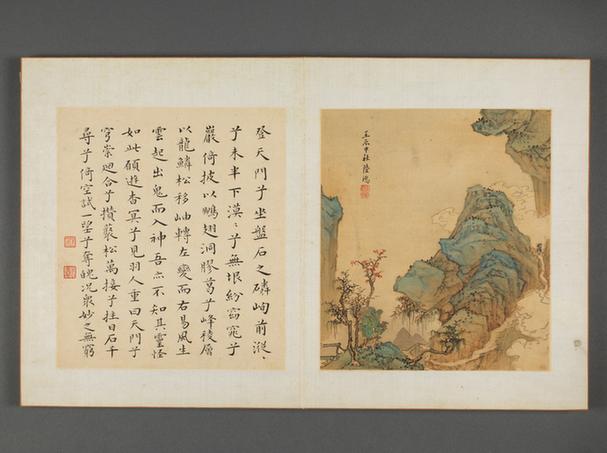 登天門兮坐盤石之磷峋前漎、
兮未半下漠、兮無垠紛窈窕兮
巖倚披以鵬翅洞膠葛兮峰稜層
以龍鱗松移岫轉左變而右易風生
雲起出鬼而入神吾亦不知其靈怪
如此願遊杳冥兮見羽人重曰天門兮
穹崇迴合兮攢藂松萬接兮拄日石千
尋兮倚空試一望兮奪魄况衆妙之無窮
壬辰中社陸